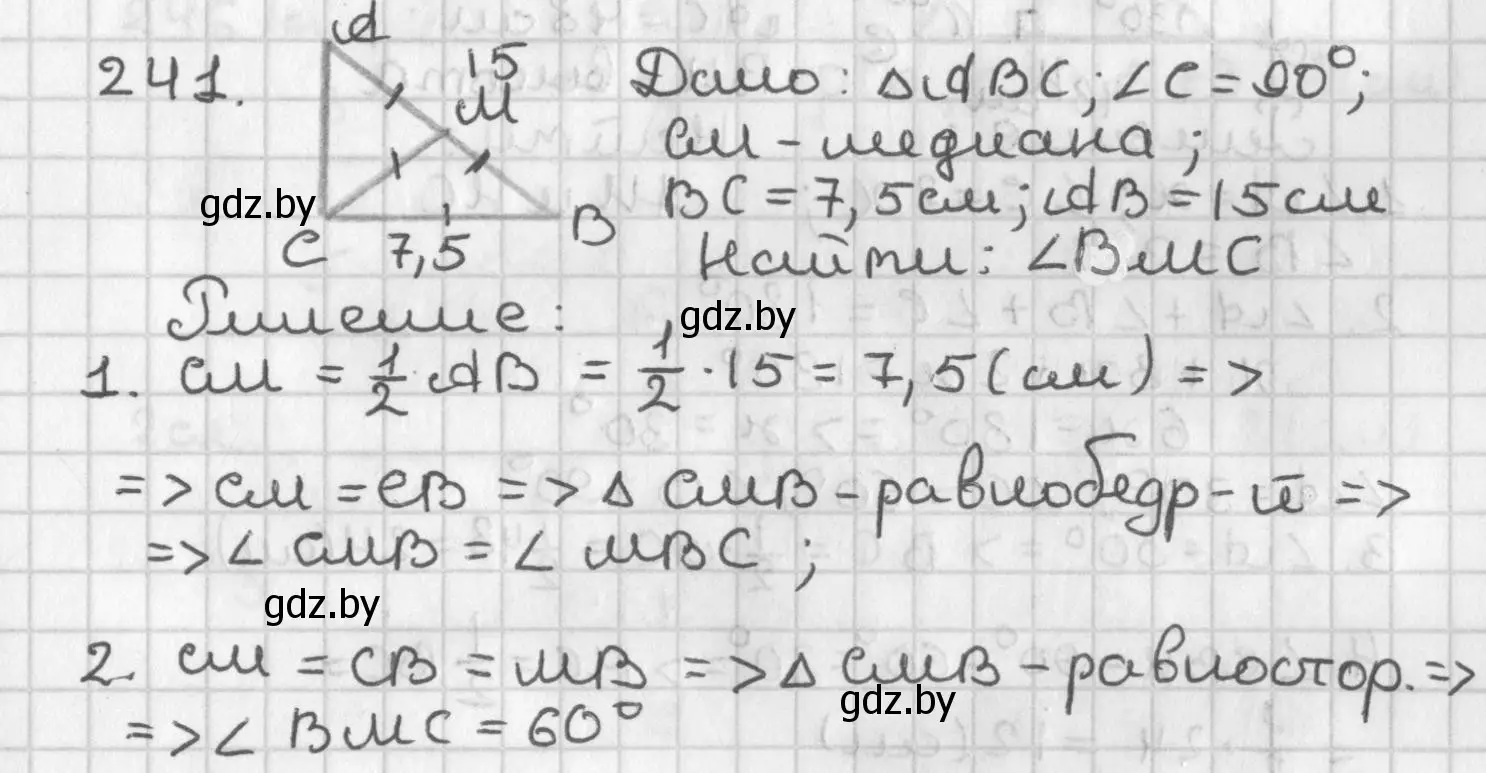 241.
A
15
M
C
7,5
B
Дано: △ABC; ∠C = 90°;
CM - медиана;
BC = 7,5 см; AB = 15 см
Найти: ∠BMC
gdz.by
Решение:
gdz.by
1. CM = 1/2 AB = 1/2 · 15 = 7,5 (см) =>
=> CM = CB => △ CMB - равнобедр-й =>
=> ∠ CMB = ∠ MBC ;
gdz.by
2. CM = CB = MB => △ CMB - равностор. =>
gdz.by
=> ∠ BMC = 60°